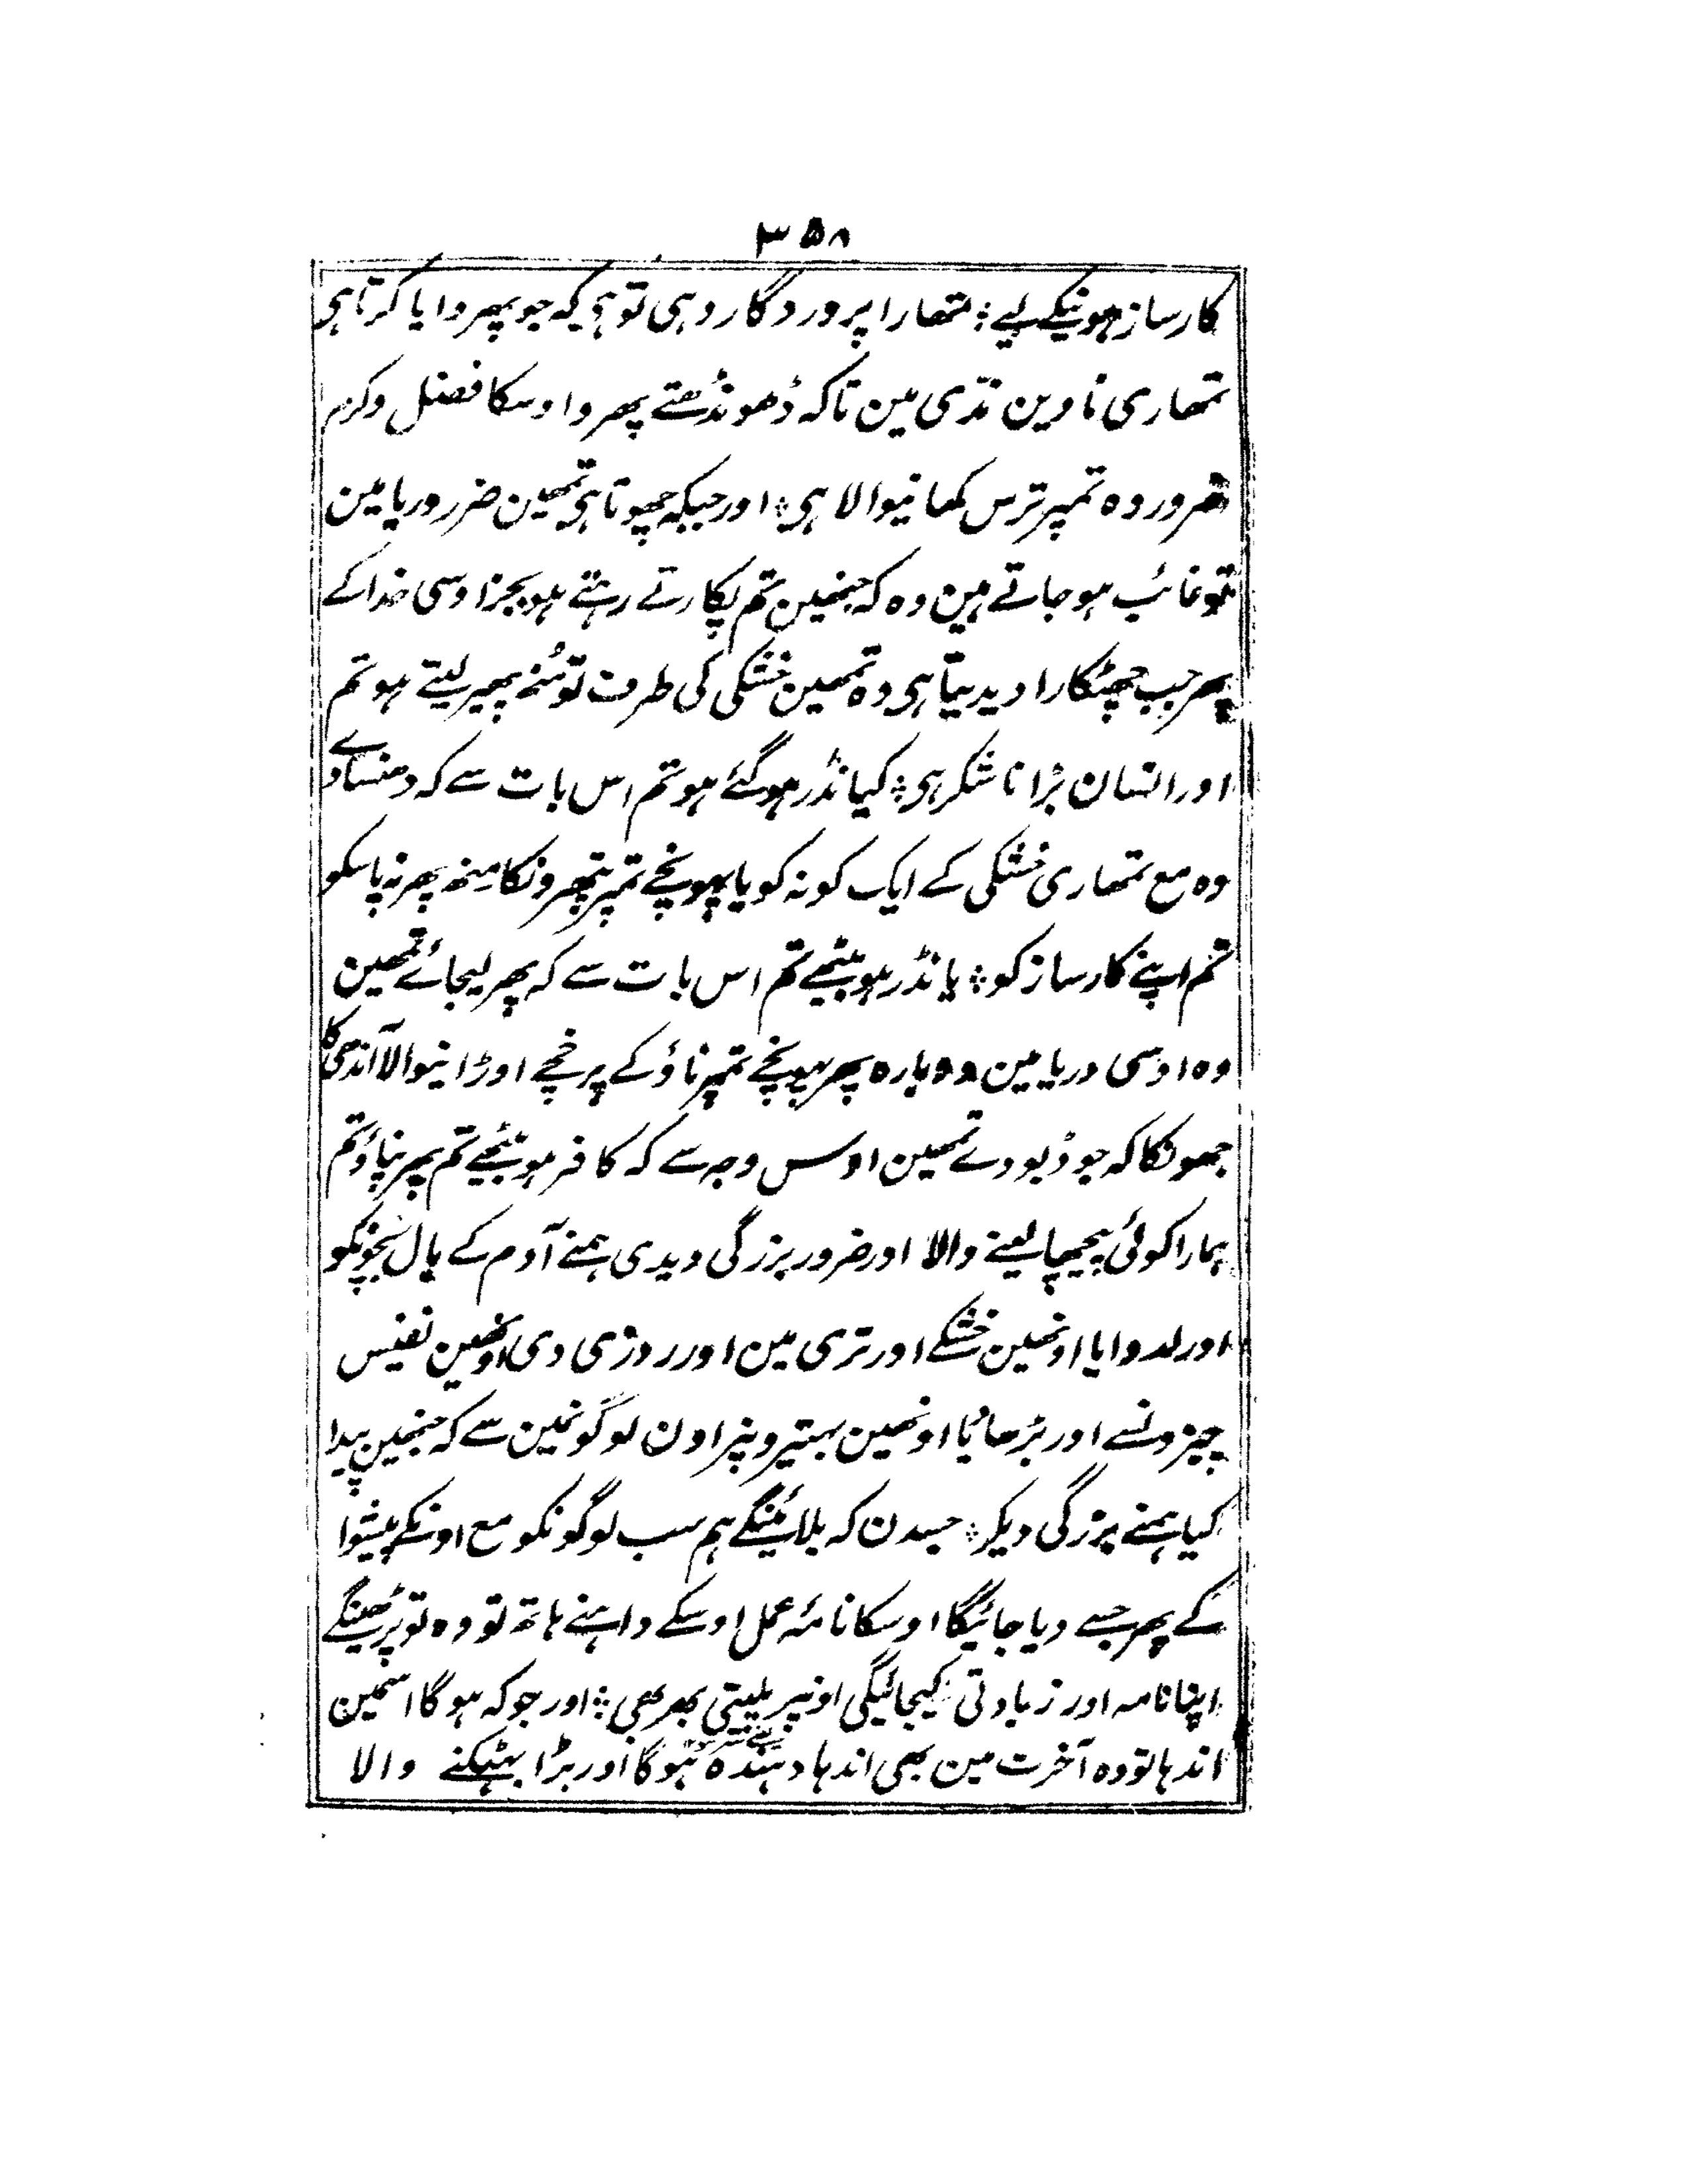 ۳۵۸
کارساز ہونیکے لیے ؛ تمھارا پروردگار وہی تو ہی کہ جو پھروایا کرتا ہی
تمھاری ناوین ندّی مین تاکہ ڈھونڈھتے پھرو اوسکا فضل وکرم
ضرور وہ تمپر ترس کھانیوالا ہی ؛ اور جبکہ چھوتا ہی تمھین ضرر دریا مین
تو غائب ہو جاتے ہین وہ کہ جنھین تم پکارتے رہتے ہو بجز اوسی خدا کے
پھر جب چھٹکارا دیدیتا ہی وہ تمھین خشکی کی طرف تو مُنھ پھیر لیتے ہو تم
اور انسان بڑا ناشکر ہی ؛ کیا نڈر ہو گئے ہو تم اس بات سے کہ دھنسادے
وہ مع تمھاری خشکی کے ایک کونہ کو یا پہونچے تمپر پتھرونکا مِنھ پھر نہ پا سکو
تم اپنے کارساز کو ؛ یا نڈر ہو بیٹھے تم اس بات سے کہ پھر لیجائے تمھین
وہ اوسی دریا مین دوبارہ پھر پہونچے تمپر ناؤ کے پرخچے اوڑانیوالا آندھی کا
جھونکا کہ جو ڈبودے تمھین اوس وجہ سے کہ کافر ہو بیٹھے تم پھر نپاؤ تم
ہمارا کوئی پیچھا لینے والا اور ضرور بزرگی دیدی ہمنے آدم کے بال بچونکو
اور لدوایا اونھین خشکے اور تری مین اور روزی دی اونھین نفیس
چیزونسے اور بڑھایا اونھین بہتیرونپر اون لوگونمین سے کہ جنھین پیدا
کیا ہمنے بزرگی دیکر ؛ جسدن کہ بلائینگے ہم سب لوگونکو مع اونکے پیشوا
کے پھر جسے دیا جائیگا اوسکا نامۂ عمل اوسکے داہنے ہاتھ تو وہ تو پڑھینگے
اپنا نامہ اور زیادتی نکیجائیگی اونپر پلیتی بھر بھی ؛ اور جو کہ ہوگا اسمین
اندہا تو وہ آخرت مین بھی اندہا دہندہ ہوگا اور بڑا بہٹکنے والا